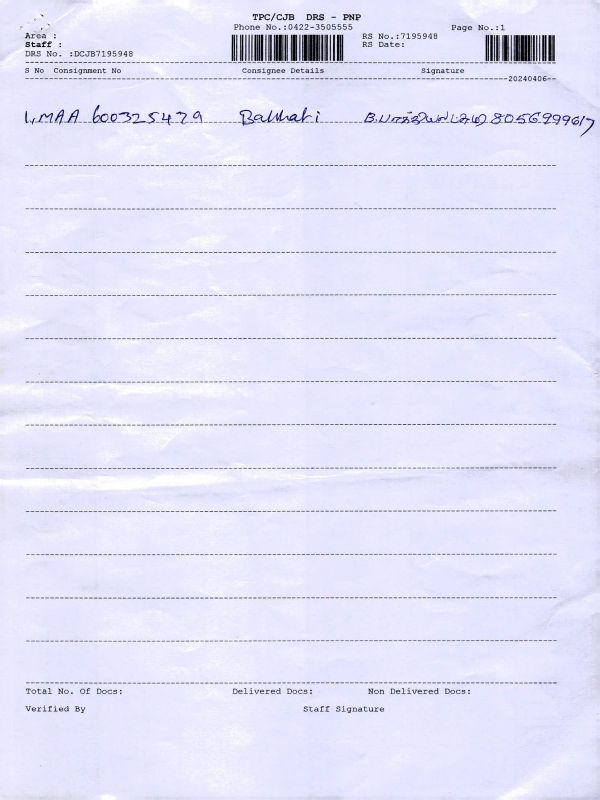 TPC/CJB DRS - PNP
Phone No.:0422-3505555 Page No.:1
Area : RS No.:7195948
Staff : RS Date:
DRS No. :DCJB7195948
S No Consignment No Consignee Details Signature
20240406
1, MAA 600325479 B. 8056999617
Total No. Of Docs: Delivered Docs: Non Delivered Docs:
Verified By Staff Signature